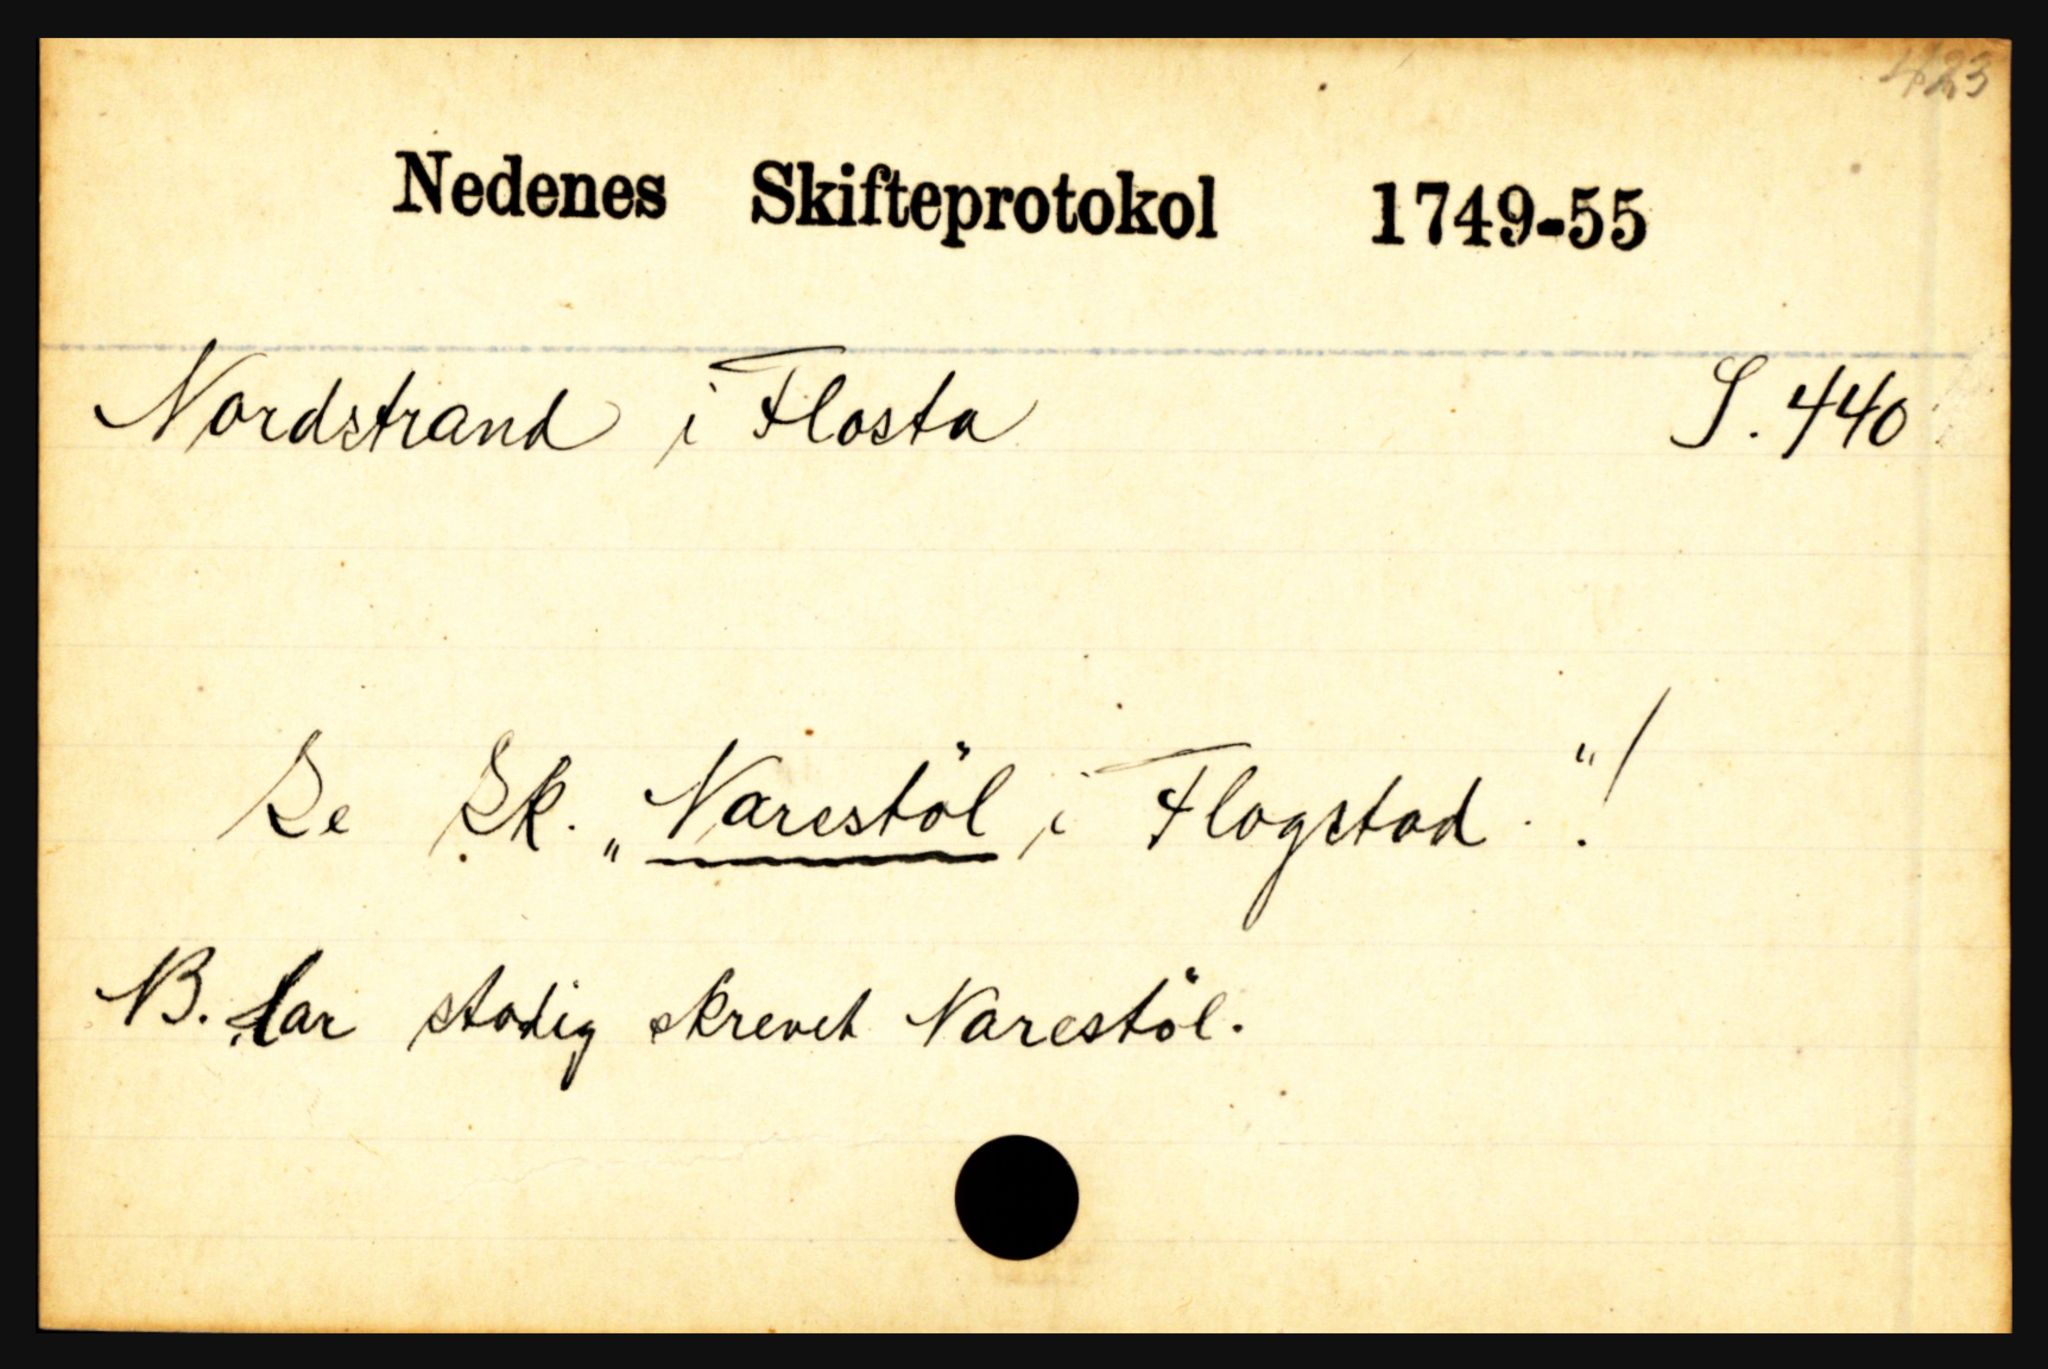 423
Nedenes Skifteprotokol 1749-55
Nordstrand i Flosta S. 440
Se Sk. „Narestöl i Flogstad."!
NB. har stadig skrevet Narestöl.